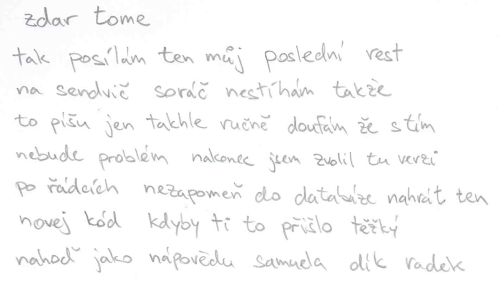 zdar tome
tak posílám ten můj poslední rest
na sendvič soráč nestíhám takže
to píšu jen takhle ručně doufám že s tím
nebude problém nakonec jsem zvolil tu verzi
po řádcích nezapomeň do databáze nahrát ten
novej kód kdyby ti to přišlo těžký
nahoď jako nápovědu samuela dík radek